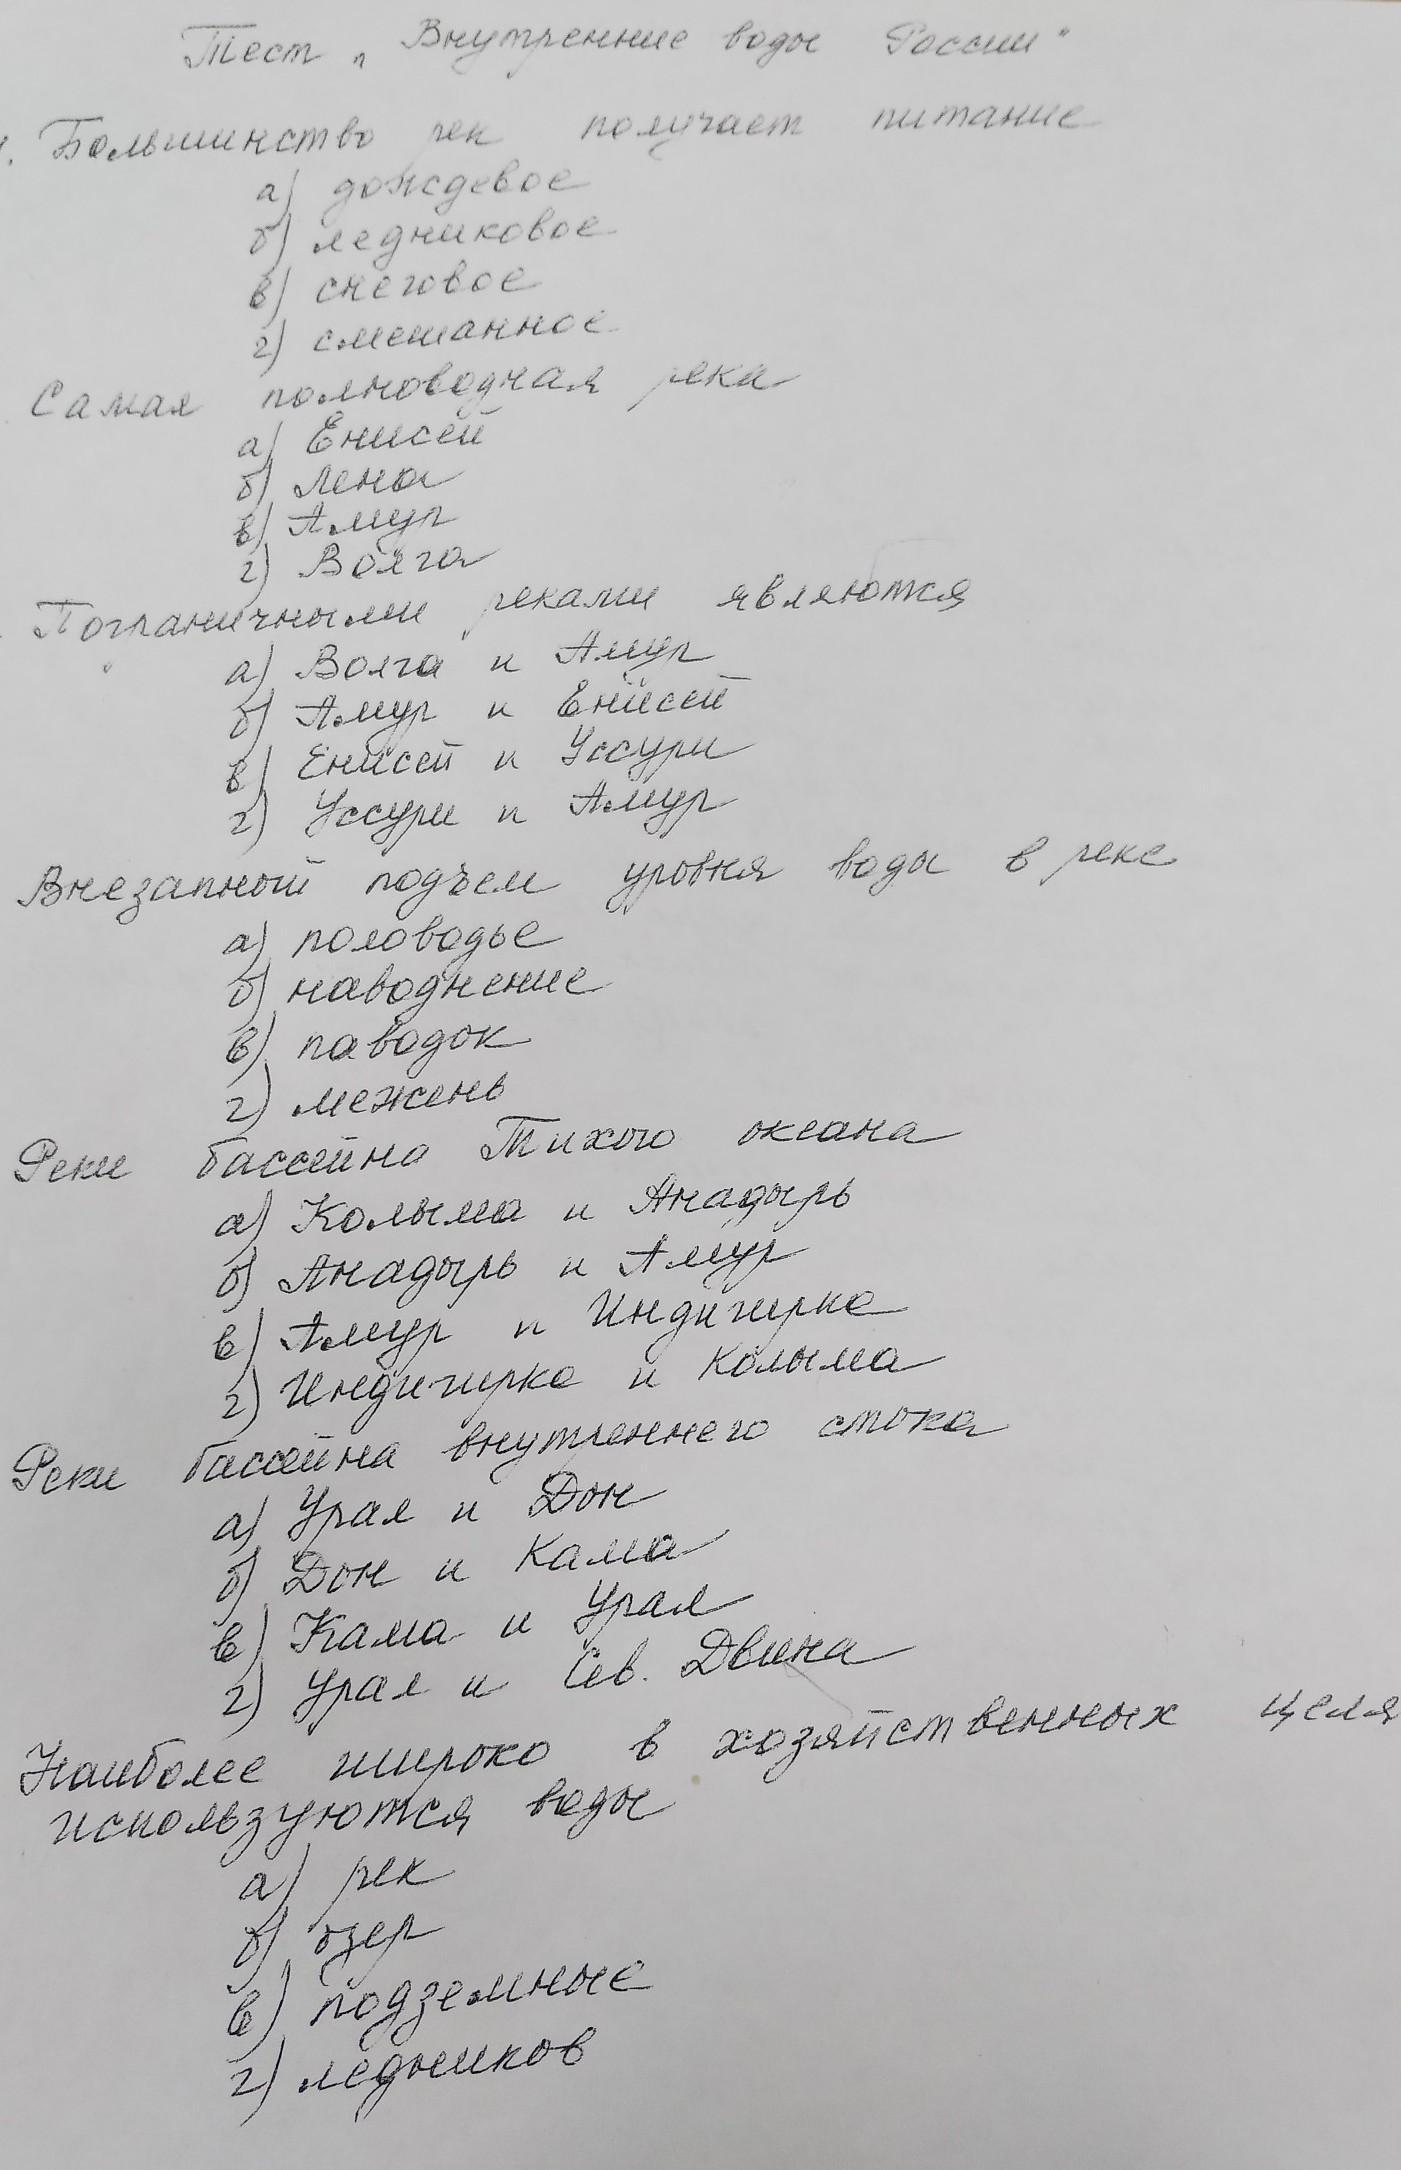 Тест „Внутренние воды России"
1. Большинство рек получает питание
а) дождевое
б) ледниковое
в) снеговое
г) смешанное
Самая полноводная река
а) Енисей
б) Лена
в) Амур
г) Волга
Пограничными реками являются
а) Волга и Амур
б) Амур и Енисей
в) Енисей и Уссури
г) Уссури и Амур
Внезапный подъем уровня воды в реке
а) половодье
б) наводнение
в) паводок
г) межень
Реки бассейна Тихого океана
а) Колыма и Анадырь
б) Анадырь и Амур
в) Амур и Индигирка
г) Индигирка и Колыма
Реки бассейна внутреннего стока
а) Урал и Дон
б) Дон и Кама
в) Кама и Урал
г) Урал и Сев. Двина
Наиболее широко в хозяйственных целя
используются воды
а) рек
б) озер
в) подземные
г) ледников